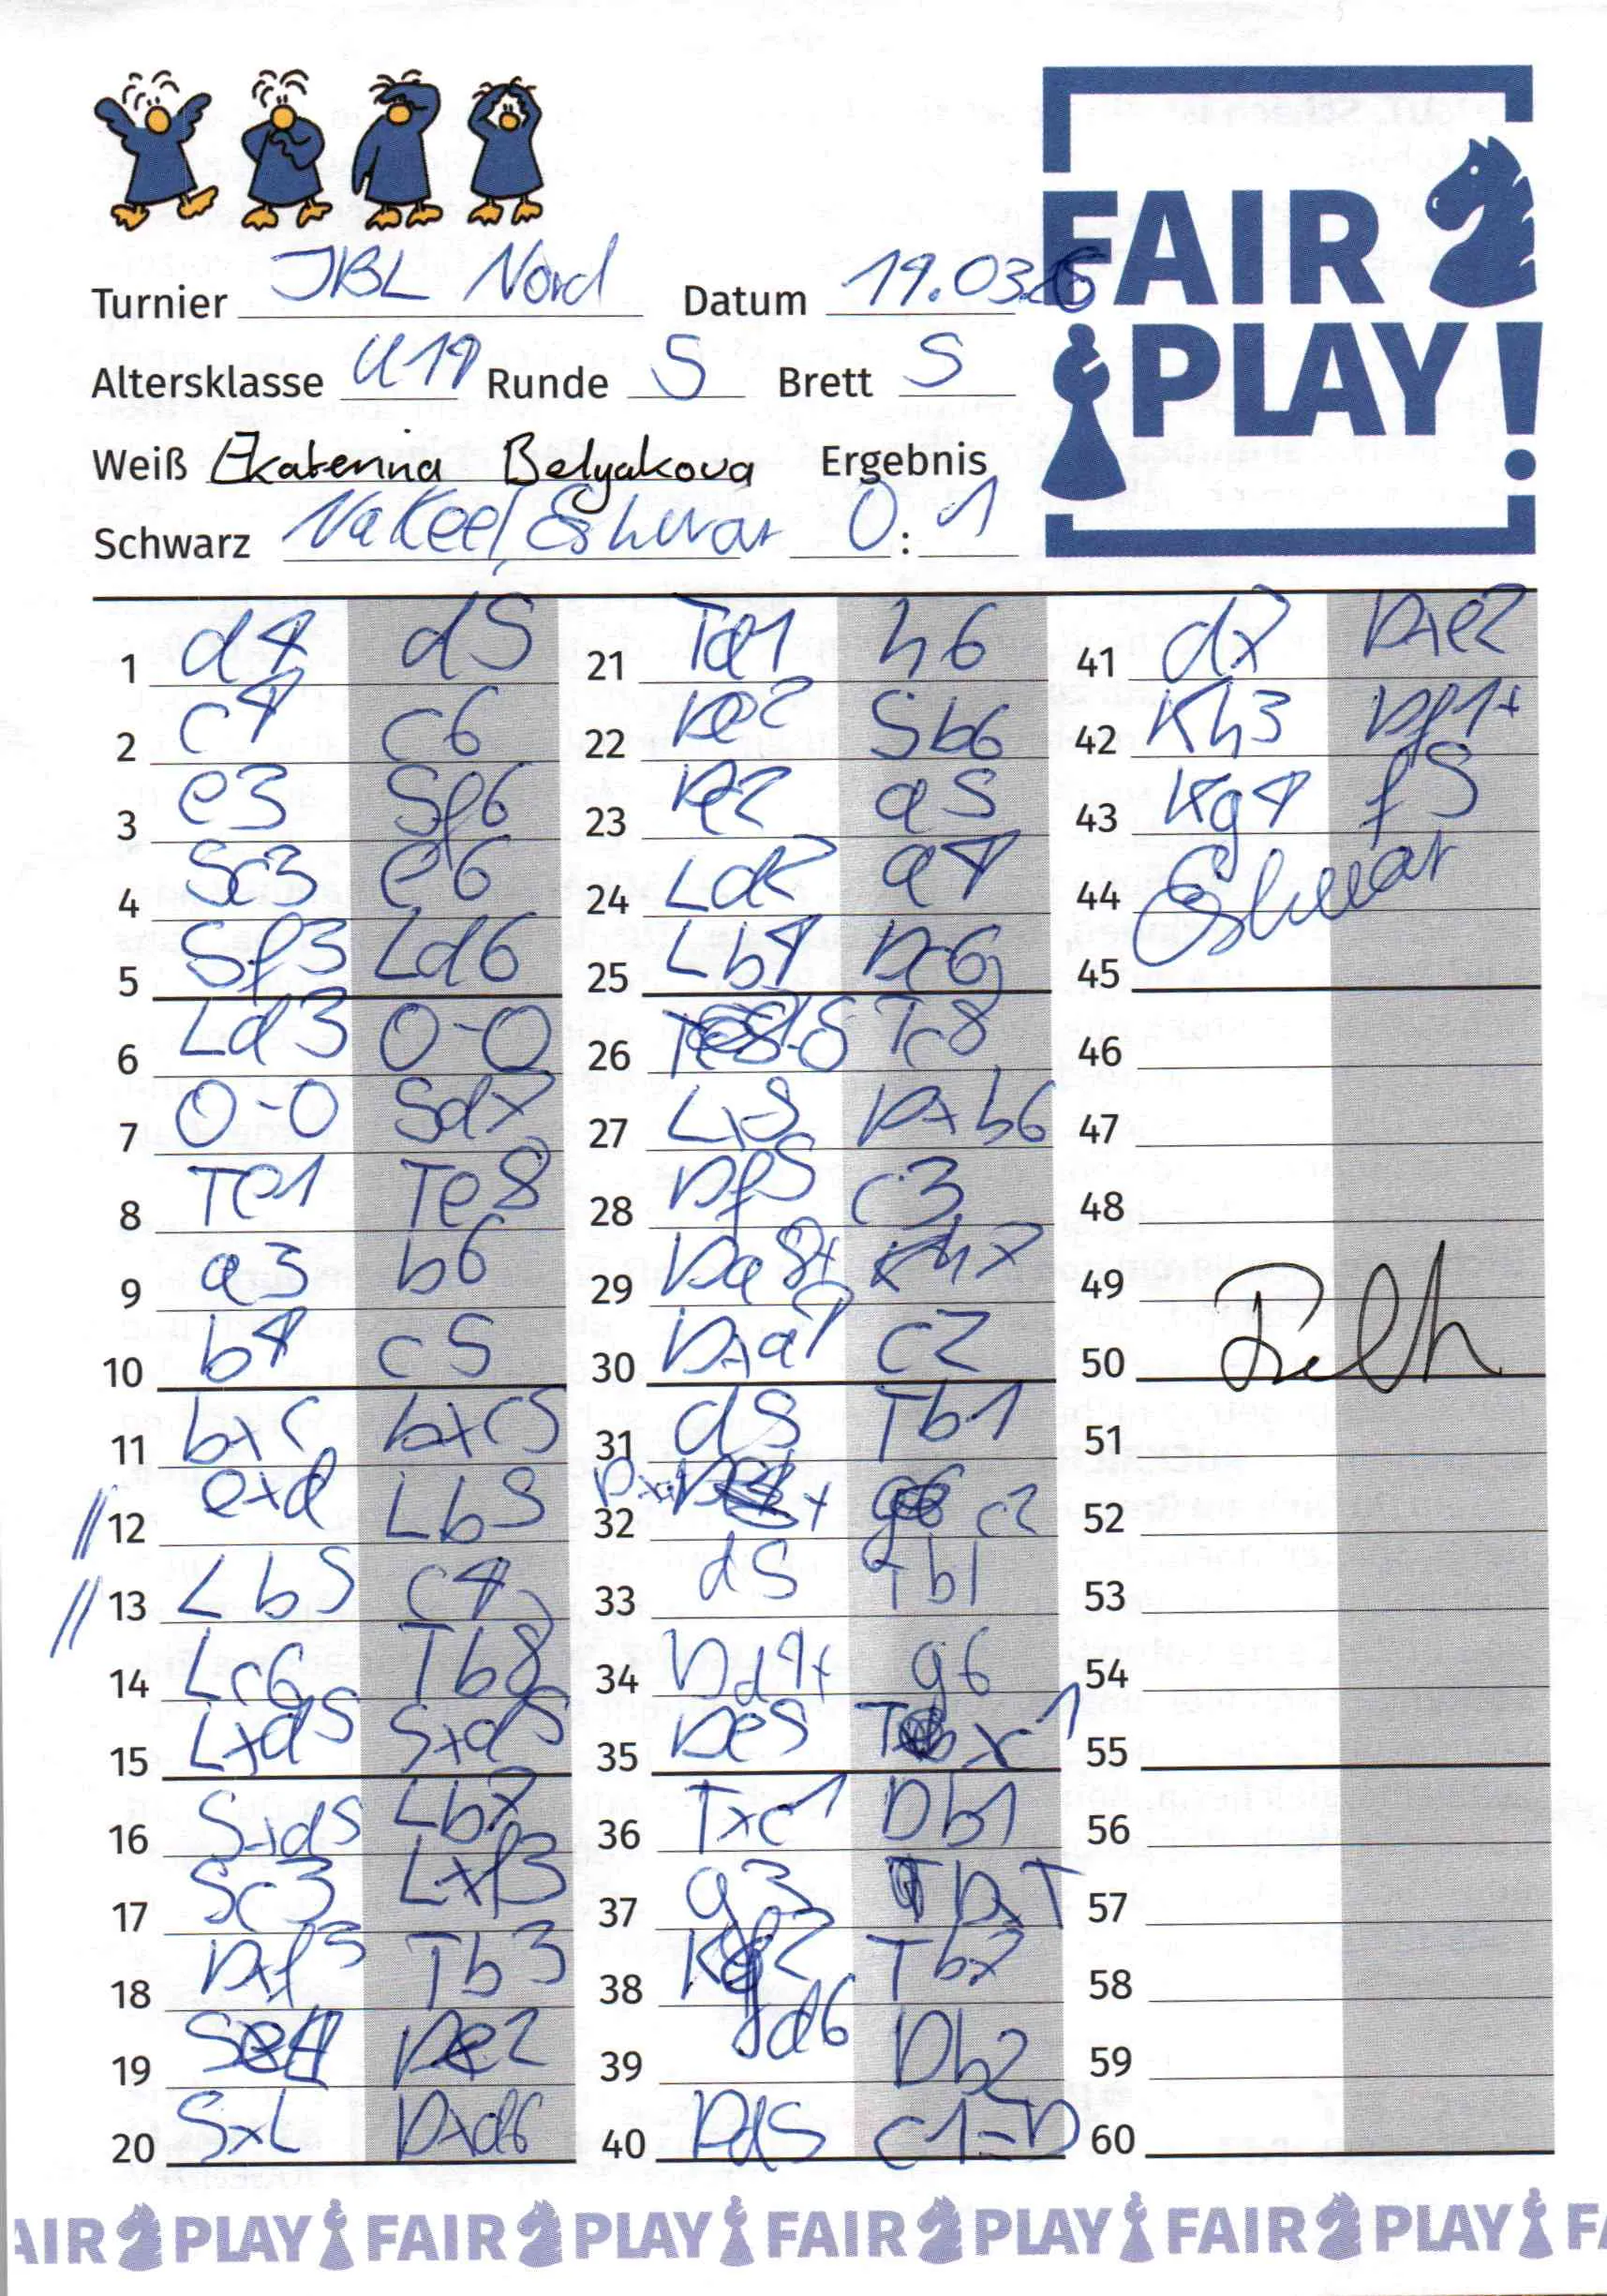 FAIR
PLAY!
Turnier JBL Nord Datum 19.03.
Altersklasse U19 Runde 5 Brett 5
Weiß Ekaterina Belyakova Ergebnis
Schwarz Nakeel, Eshwar 0 : 1
1 d4 d5
2 c4 c6
3 e3 Sf6
4 Sc3 e6
5 Sf3 Ld6
6 Ld3 0-0
7 0-0 Sd7
8 Te1 Te8
9 a3 b6
10 b4 c5
11 bxc bxc5
12 exd Lb5
13 Lb5 c4
14 Lc6 Tb8
15 Lxd5 Sxd5
16 Sxd5 Lb7
17 Sc3 Lxf3
18 Dxf3 Tb3
19 Se4 De2
20 SxL Dxd6
21 Td1 h6
22 De2 Sb6
23 a5
24 Ld2 a4
25 Lb4
26 Tc8
27 Dxb6
28 Df5 c3
29 Da8+ Kh7
30 Dxa4 c2
31 d5 Tb1
32 c2
33 d5 Tb1
34 Dd4+ g6
35 De5 Tbxc1
36 Txc1 Db1
37 g3 DxT
38 Kg2 Tb7
39 d6 Db2
40 Dd5 c1=D
41 d7 Dxe2
42 Kh3 Df1+
43 Kg4 f5
44 Eshwar
45
46
47
48
49
50
51
52
53
54
55
56
57
58
59
60
AIR PLAY FAIR PLAY FAIR PLAY FAIR PLAY F